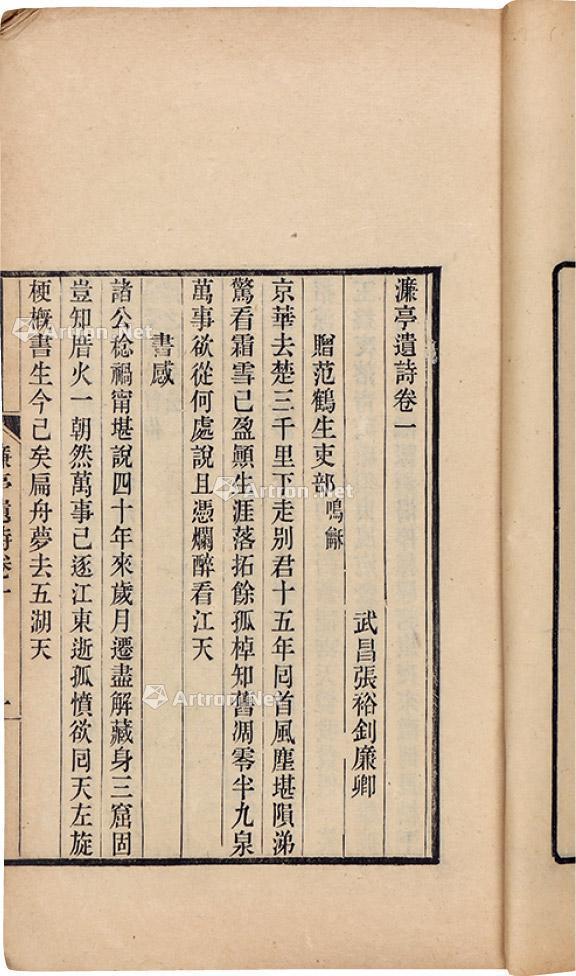 濂亭遺詩卷一
武昌張裕釗廉卿
贈范鶴生吏部鳴龢
京華去楚三千里下走別君十五年囘首風塵堪隕涕
驚看霜雪已盈顚生涯落拓餘孤棹知舊凋零半九泉
萬事欲從何處說且憑爛醉看江天
書感
諸公稔禍甯堪說四十年來歲月遷盡解藏身三窟固
豈知厝火一朝然萬事已逐江東逝孤憤欲囘天左旋
梗概書生今已矣扁舟夢去五湖天
濂亭遺詩卷一
一
Artron.Net
Artron.Net
Artron.Net
Artron.Net
Artron.Net